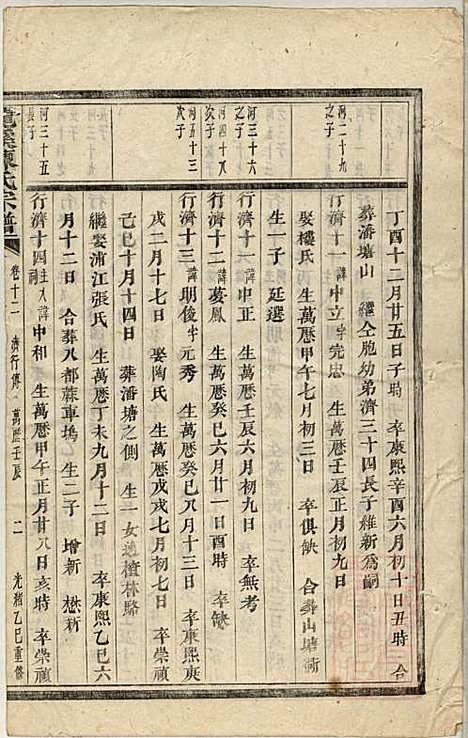 丁酉十二月廿五日子時　卒康熙辛酉六月初十日丑時　合
葬潘塘山　繼仝胞幼弟濟三十四長子維新爲嗣
河二十九之子
行濟十一諱中立字完忠　生萬曆壬辰正月初九日
娶樓氏　生萬曆甲午七月初三日　卒俱缺　合葬山塘衕
生一子　廷選
河三十六子
行濟十一諱中正　生萬曆壬辰六月初九日　卒無考
河四十八次子
行濟十二諱夢鳳　生萬曆癸巳六月廿一日酉時　卒缺
河五十三次子
行濟十三諱明俊字元秀　生萬曆癸巳八月十三日　卒康熙庚
戌二月十七日　娶陶氏　生萬曆戊戌七月初七日　卒崇禎
己巳十月十四日　葬潘塘之側　生一女適檀林駱
繼娶浦江張氏　生萬曆丁未九月十二日　卒康熙乙巳六
月十二日　合葬八都蔴車塢　生二子　增新　懋新
河三十五長子
行濟十四主入祠諱中和　生萬曆甲午正月廿八日亥時　卒崇禎
陳氏宗譜　卷十二　濟行傳　萬曆壬辰　二　光緒乙巳重修